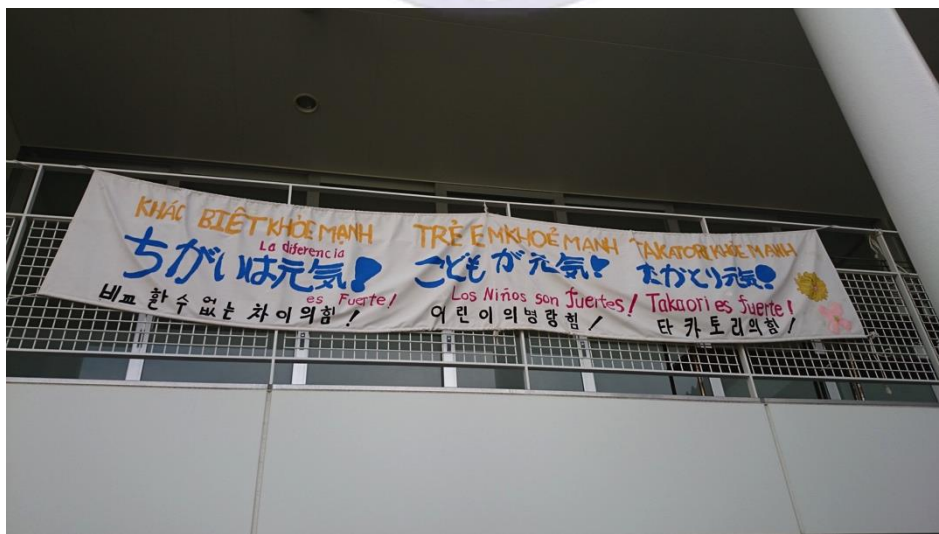 KHÁC BIỆT KHỎE MẠNH
La diferencia
ちがいは元気!
es Fuerte!
비교할 수 없는 차이의 힘!
TRẺ EM KHOẺ MANH
こどもが元気!
Los Niños son fuertes!
어린이의 명랑힘!
TAKATORI KHỎE MANH
たかとり元気!
Takaori es fuerte!
타카토리의 힘!